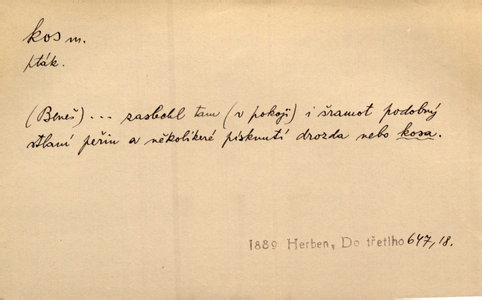 kos m.
pták.
(Beneš)... zaslechl tam (v pokoji) i šramot podobný
stlaní peřin a několikeré písknutí drozda nebo kosa.
1889 Herben, Do třetího 647,18.